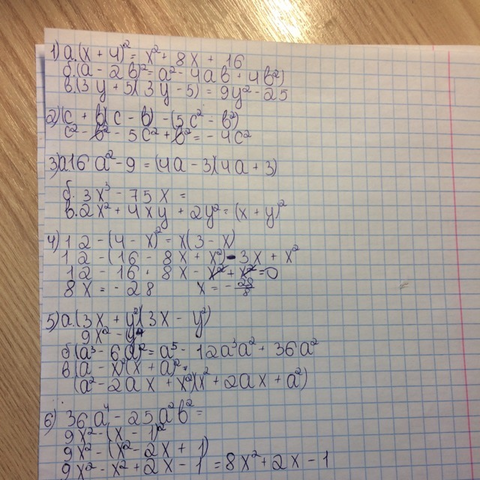 1) а.(x + 4)² = x² + 8x + 16
б.(a - 2b)² = a² - 4ab + 4b²)
в.(3y + 5)(3y - 5) = 9y² - 25
2)(c + b)(c - b) - (5c² - b²)
c² - b² - 5c² + b² = -4c²
3)а.16a² - 9 = (4a - 3)(4a + 3)
б. 3x³ - 75x =
в. 2x² + 4xy + 2y² = (x + y)²
4) 12 - (4 - x)² = x(3 - x)
12 - (16 - 8x + x²) - 3x + x²
12 - 16 + 8x - x² + x² = 0
8x = -28 x = -28/8
5) а.(3x + y²)(3x - y²)
9x² - y⁴
б(a³ - 6a)² = a⁵ - 12a³a² + 36a²
в(a - x)²(x + a)²
(a² - 2ax + x²)(x² + 2ax + a²)
6) 36a⁴ - 25a²b² =
9x² - (x - 1)²
9x² - (x² - 2x + 1)
9x² - x² + 2x - 1 = 8x² + 2x - 1